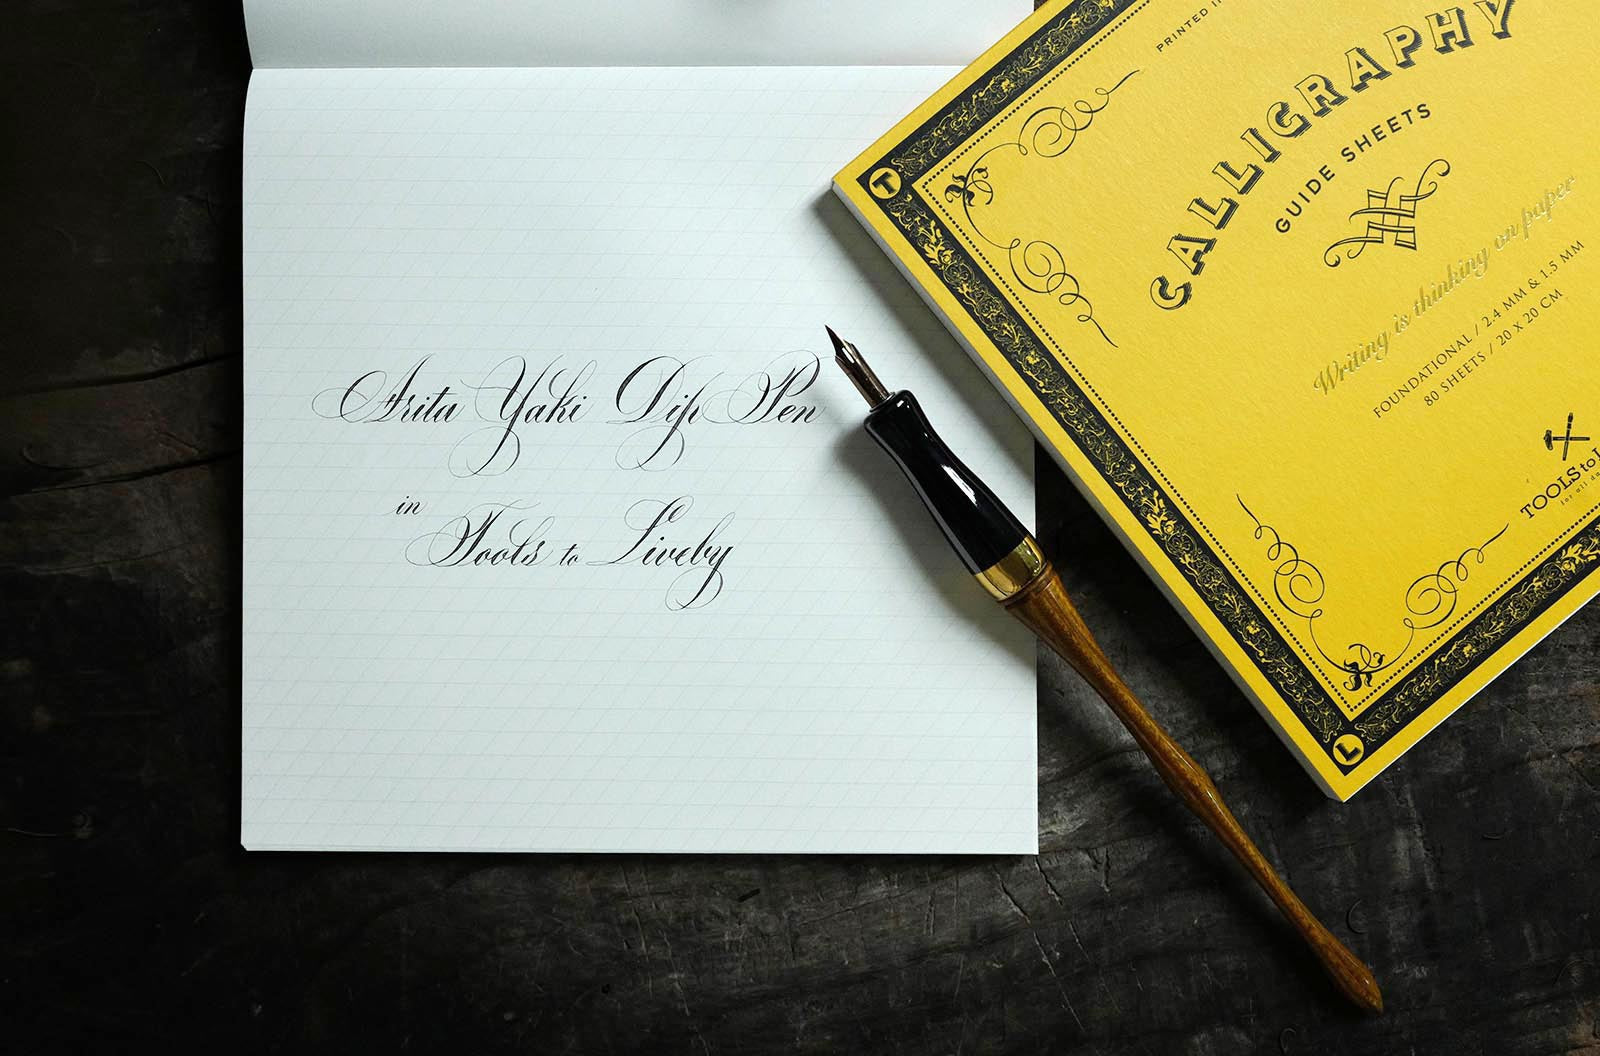 Arita Yaki Dip Pen
in
Tools to Liveby
PRINTED I
CALLIGRAPHY
GUIDE SHEETS
Writing is thinking on paper
FOUNDATIONAL / 2.4 MM & 1.5 MM
80 SHEETS / 20 X 20 CM
TOOLS to L
for all da
T
L